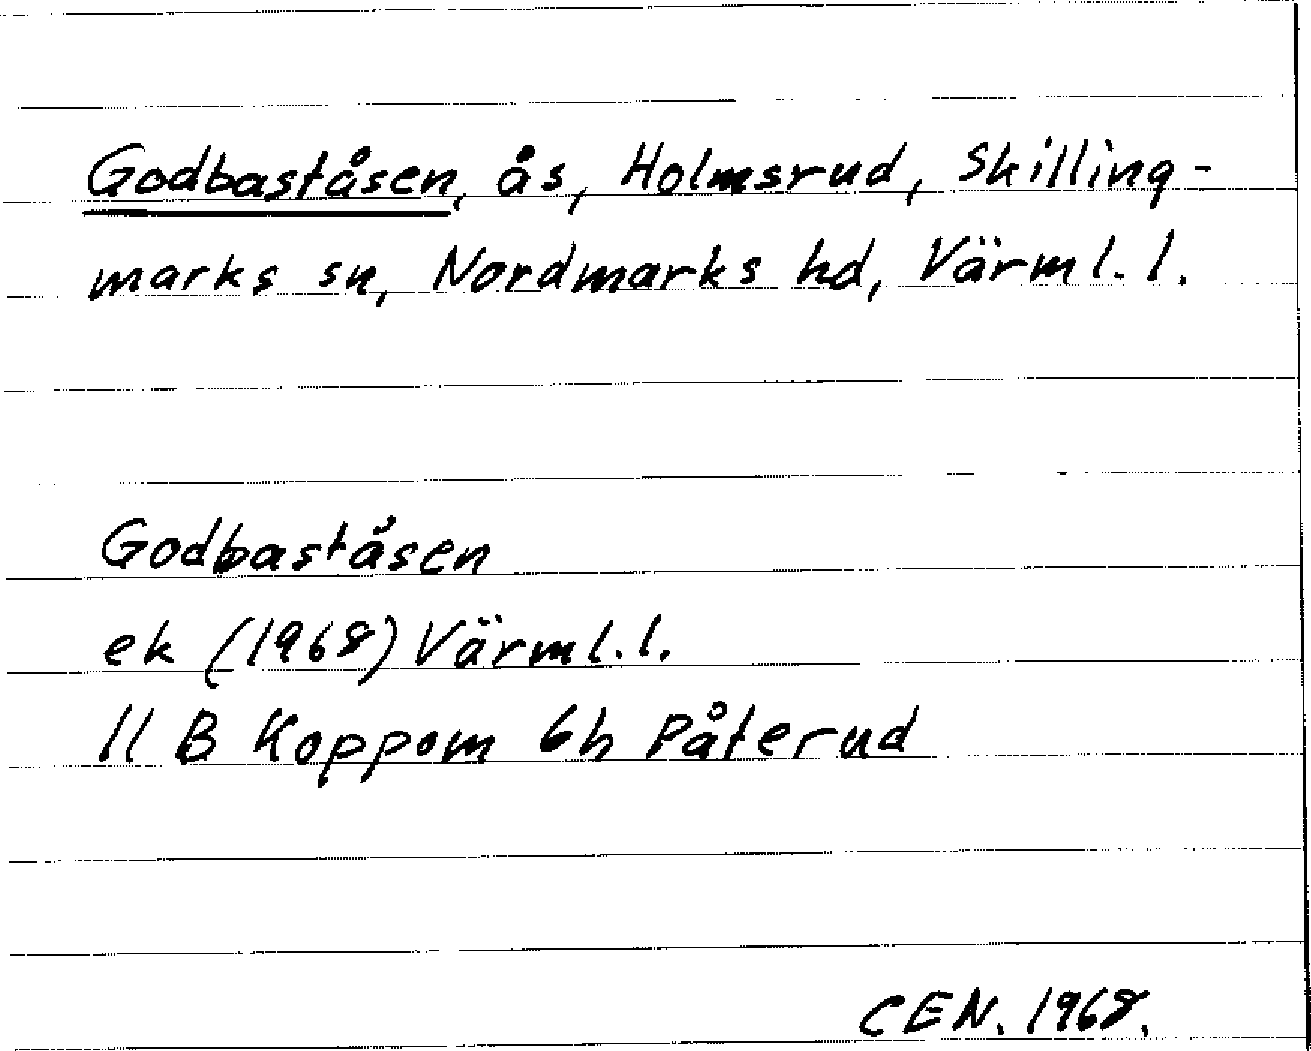 Godbaståsen, ås, Holmsrud, Skilling-
marks sn, Nordmarks hd, Värml. l.
Godbaståsen
ek (1968) Värml. l.
11 B Koppom 6h Påterud
CEN. 1968.